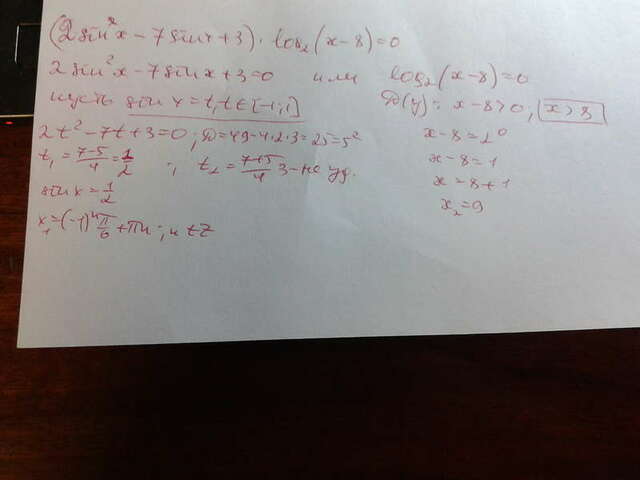 (2sin²x - 7sinx + 3) · log₂(x-8) = 0
2sin²x - 7sinx + 3 = 0 или log₂(x-8) = 0
пусть sin x = t, t ∈ [-1;1] D(y): x-8>0; x>8
2t² - 7t + 3 = 0; D = 49 - 4·2·3 = 25 = 5² x-8 = 2⁰
t₁ = (7-5)/4 = 1/2 ; t₂ = (7+5)/4 3 - не уд. x-8 = 1
sin x = 1/2 x = 8+1
x₁ = (-1)ⁿ π/6 + πn; n ∈ Z x₂ = 9